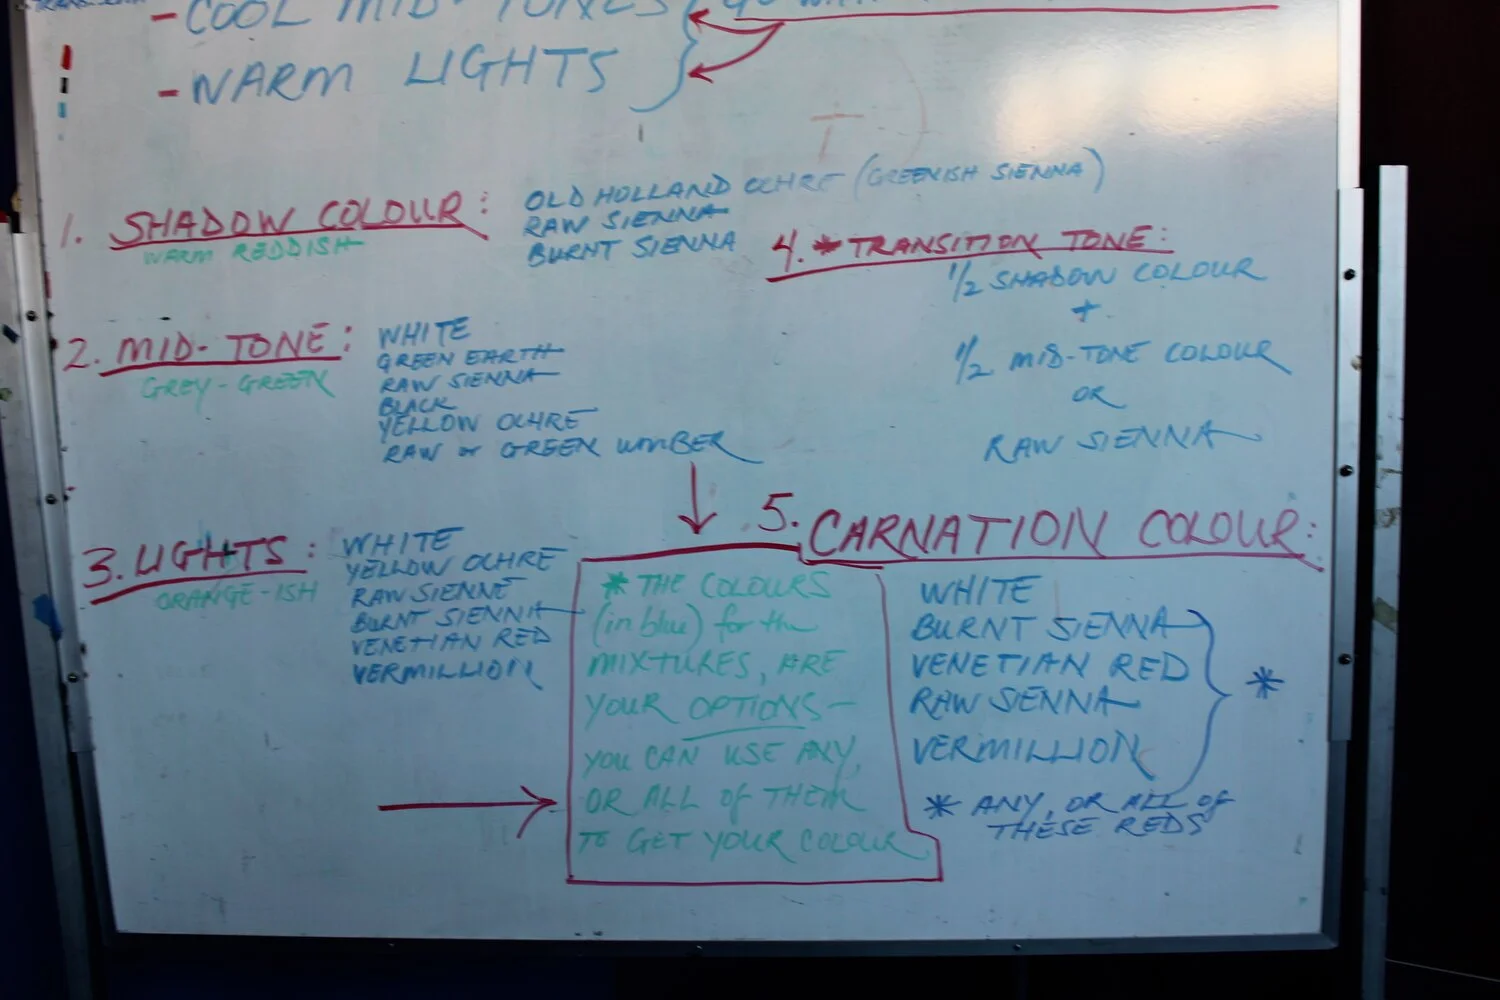 - COOL MID-TONES
- WARM LIGHTS
1. SHADOW COLOUR:
WARM REDDISH
OLD HOLLAND OCHRE (GREENISH SIENNA)
RAW SIENNA
BURNT SIENNA
2. MID-TONE:
GREY-GREEN
WHITE
GREEN EARTH
RAW SIENNA
BLACK
YELLOW OCHRE
RAW or GREEN UMBER
3. LIGHTS:
ORANGE-ISH
WHITE
YELLOW OCHRE
RAW SIENNE
BURNT SIENNA
VENETIAN RED
VERMILLION
4. * TRANSITION TONE:
1/2 SHADOW COLOUR
+
1/2 MID-TONE COLOUR
OR
RAW SIENNA
* THE COLOURS
(in blue) for the
MIXTURES, ARE
YOUR OPTIONS –
YOU CAN USE ANY,
OR ALL OF THEM
TO GET YOUR COLOUR
5. CARNATION COLOUR:
WHITE
BURNT SIENNA
VENETIAN RED
RAW SIENNA
VERMILLION
*
* ANY, OR ALL OF
THESE REDS